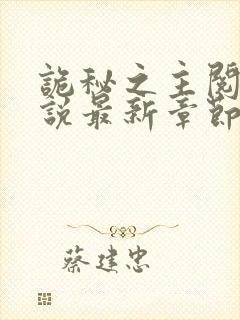 詭秘之主閱
說最新章節
蔡建忠